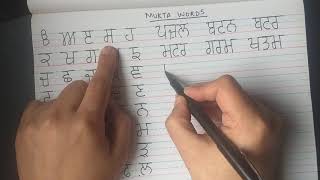 MUKTA WORDS
ੳ ਅ ੲ ਸ ਹ ਪਜ਼ਲ ਬਟਨ ਬਟਰ
ਕ ਖ ਗ ਙ ਮਟਰ ਗਰਮ ਖਤਮ
ਚ ਛ ਜ ਞ
ਣ
ਨ
ਮ
ੜ
ਲ